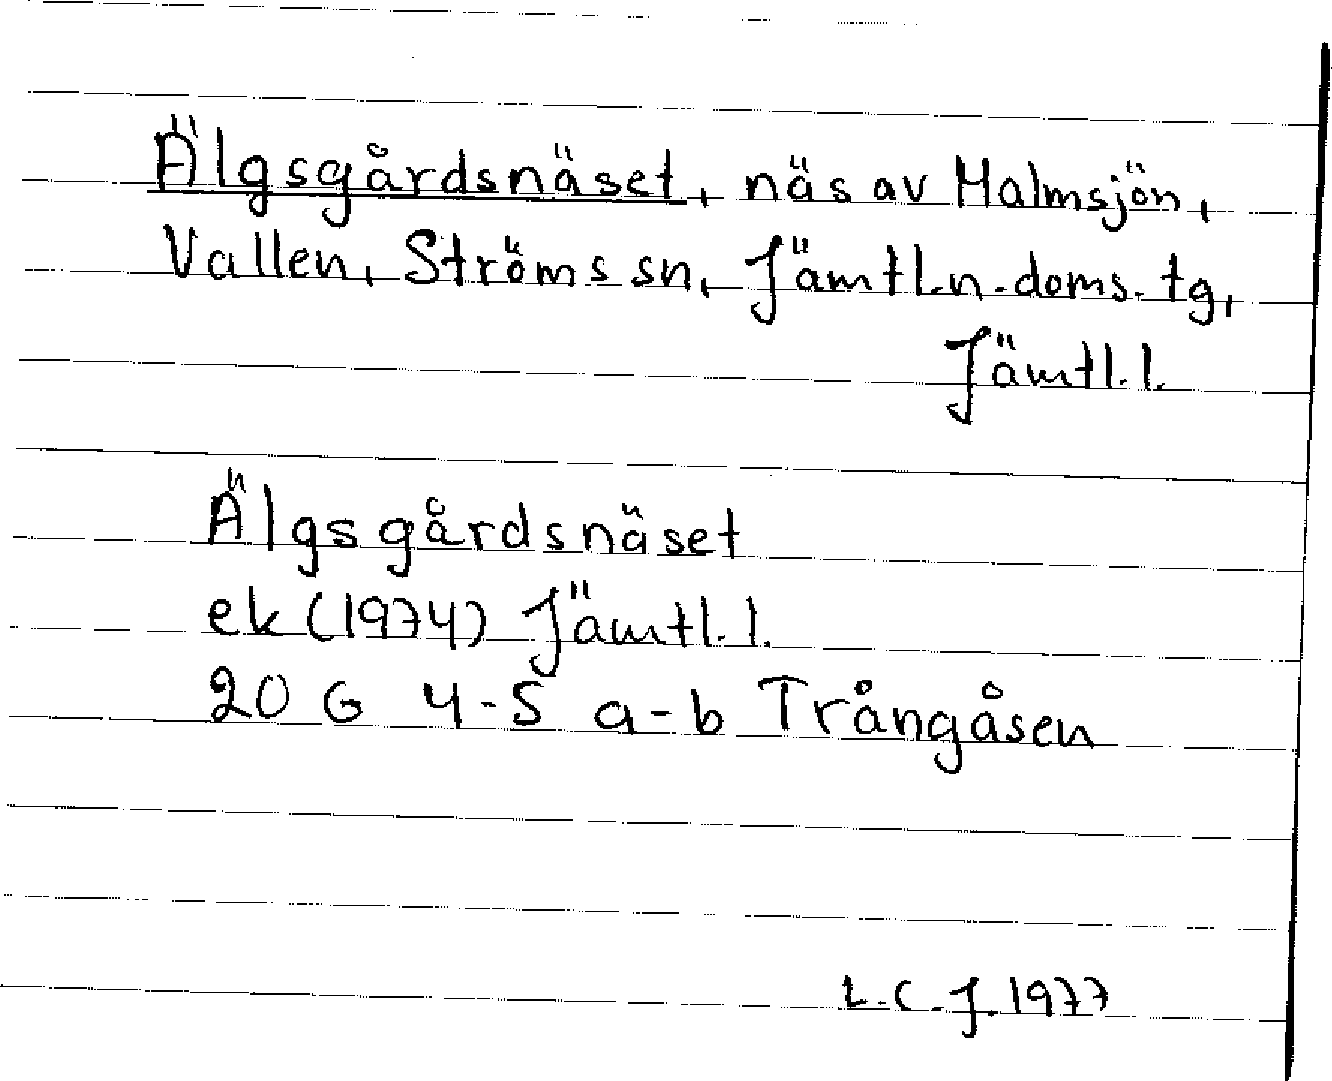 Älgsgårdsnäset, näs av Malmsjön,
Vallen, Ströms sn, Jämtl.n. doms. tg,
Jämtl.l.
Älgsgårdsnäset
ek (1974) Jämtl.l.
20 G 4-5 a-b Trångåsen
L.C.J. 1977